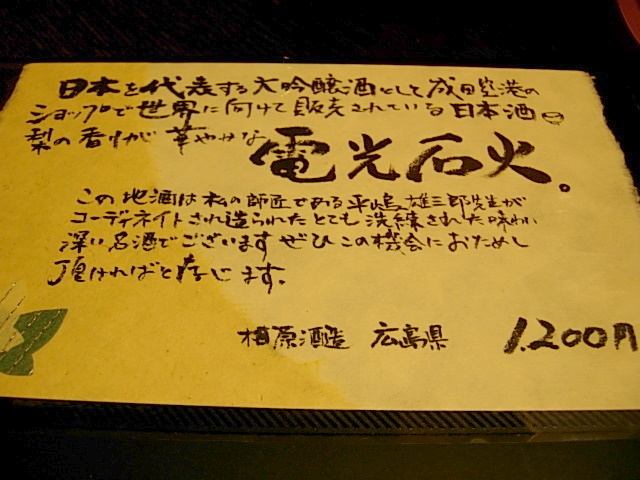 日本を代表する大吟醸酒として成田空港の
ショップで世界に向けて販売されている日本酒。
梨の香りが華やかな 電光石火。
この地酒は私の師匠である平嶋雄三郎先生が
コーディネイトされ造られたとても洗練された味わい
深い名酒でございます ぜひこの機会におためし
頂ければと存じます。
柏原酒造 広島県 1,200円